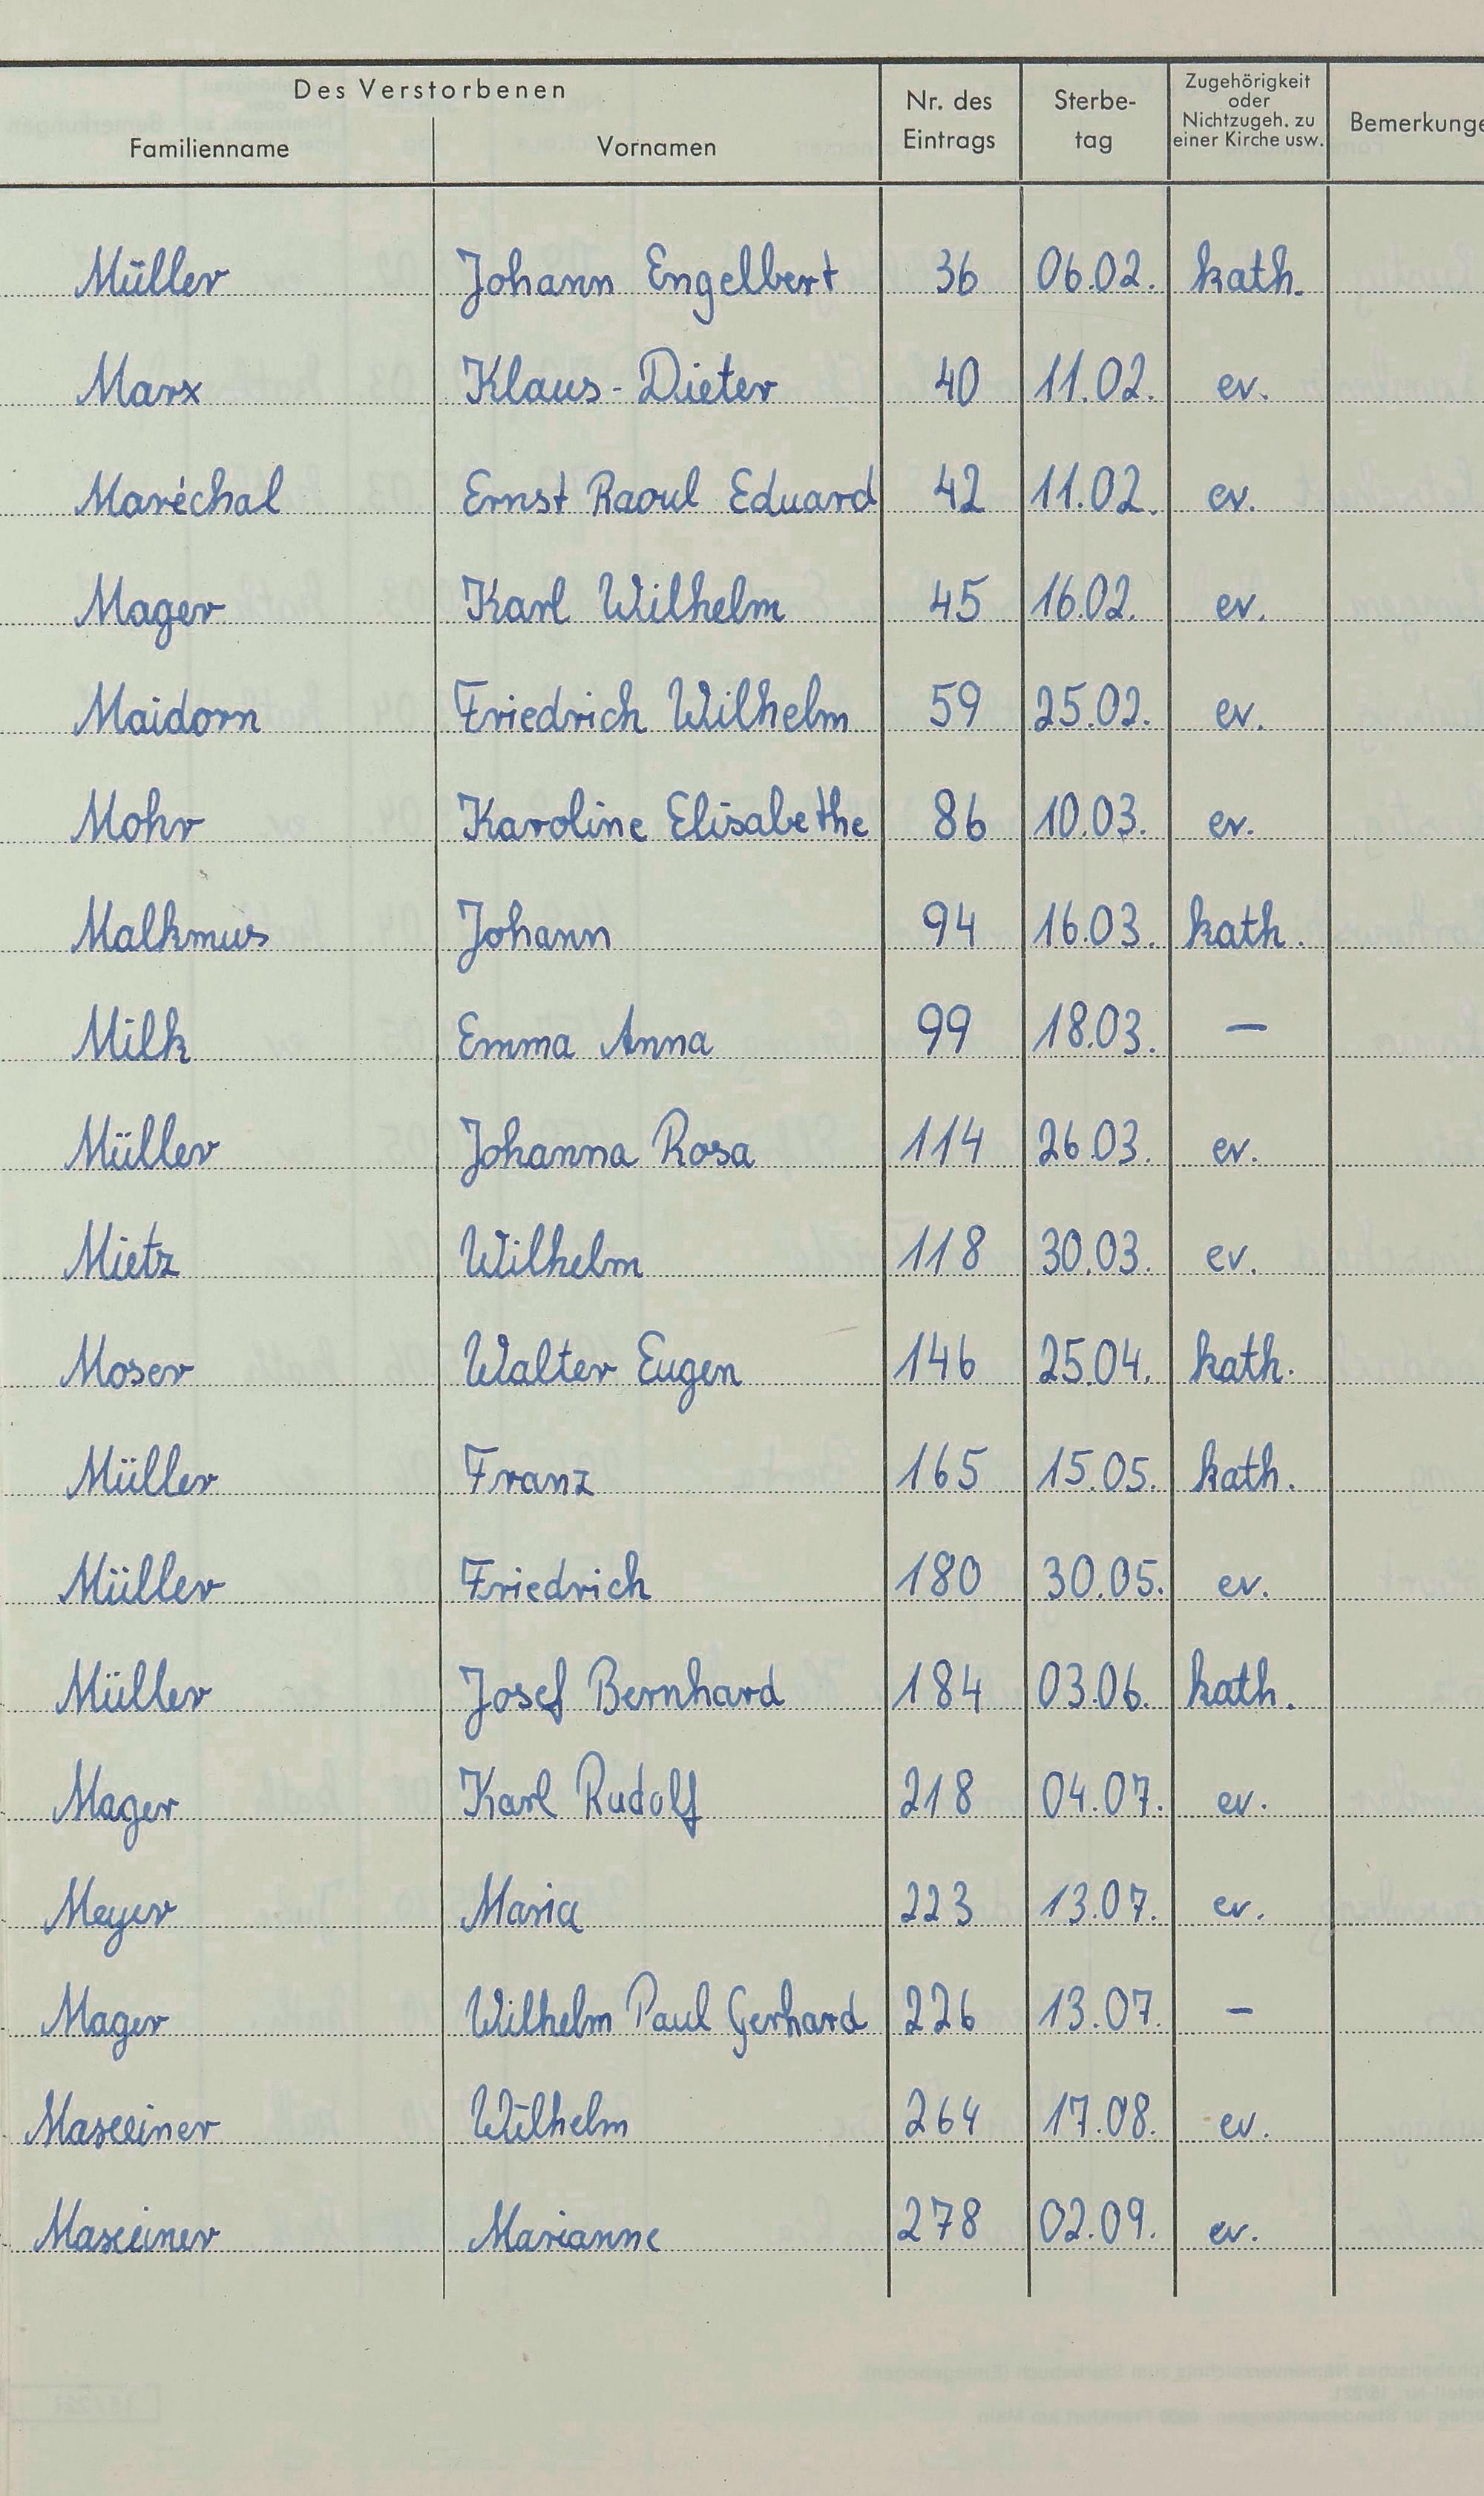 Des Verstorbenen
Familienname Vornamen Nr. des Eintrags Sterbe-tag Zugehörigkeit oder Nichtzugeh. zu einer Kirche usw. Bemerkunge
Müller Johann Engelbert 36 06.02. kath.
Marx Klaus-Dieter 40 11.02. ev.
Maréchal Ernst Raoul Eduard 42 11.02. ev.
Mager Karl Wilhelm 45 16.02. ev.
Maidorn Friedrich Wilhelm 59 25.02. ev.
Mohr Karoline Elisabethe 86 10.03. ev.
Malkmus Johann 94 16.03. kath.
Milk Emma Anna 99 18.03. —
Müller Johanna Rosa 114 26.03. ev.
Mietz Wilhelm 118 30.03. ev.
Moser Walter Eugen 146 25.04. kath.
Müller Franz 165 15.05. kath.
Müller Friedrich 180 30.05. ev.
Müller Josef Bernhard 184 03.06. kath.
Mager Karl Rudolf 218 04.07. ev.
Meyer Maria 223 13.07. ev.
Mager Wilhelm Paul Gerhard 226 13.07. —
Wilhelm 264 17.08. ev.
Marianne 278 02.09. ev.